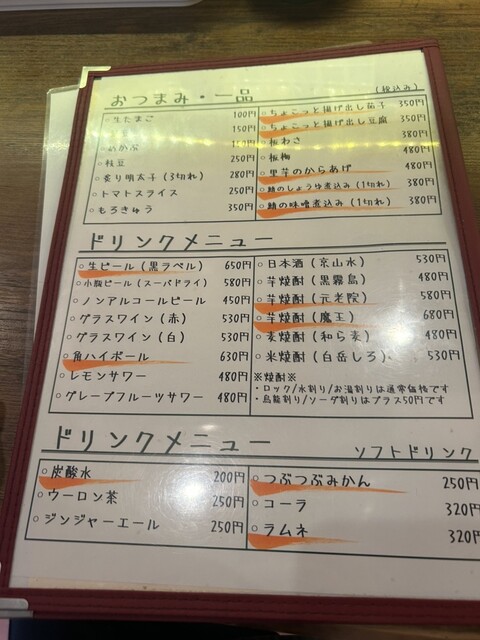 おつまみ・一品
(税込み)
○生たまご 100円
150円
150円
○枝豆 250円
○炙り明太子(3切れ) 280円
○トマトスライス 250円
○もろきゅう 350円
○ちょこっと揚げ出し茄子 350円
○ちょこっと揚げ出し豆腐 350円
○板わさ 380円
○板梅 480円
○里芋のからあげ 480円
○鯖のしょうゆ煮込み(1切れ) 380円
○鯖の味噌煮込み(1切れ) 380円
ドリンクメニュー
○生ビール(黒ラベル) 650円
○小瓶ビール(スーパドライ) 580円
○ノンアルコールビール 450円
○グラスワイン(赤) 530円
○グラスワイン(白) 530円
○角ハイボール 630円
○レモンサワー 480円
○グレープフルーツサワー 480円
○日本酒(京山水) 530円
○芋焼酎(黒霧島) 480円
○芋焼酎(元老院) 580円
○芋焼酎(魔王) 680円
○麦焼酎(和ら麦) 480円
○米焼酎(白岳しろ) 530円
※焼酎※
・ロック/水割り/お湯割りは通常価格です
・烏龍割り/ソーダ割りはプラス50円です
ドリンクメニュー
ソフトドリンク
○炭酸水 200円
○ウーロン茶 250円
○ジンジャーエール 250円
○つぶつぶみかん 250円
○コーラ 320円
○ラムネ 320円